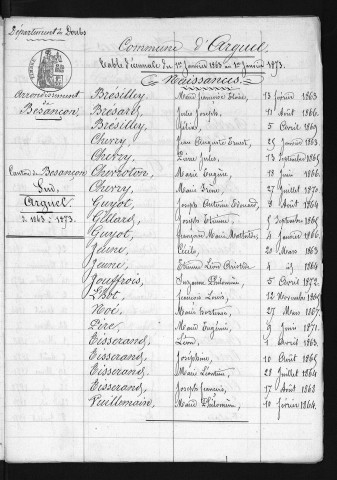 Département du Doubs
Commune d'Arguel.
Table Décennale du 1er Janvier 1863 au 1er Janvier 1873.
Naissances.
Arrondissement
de
Besançon
Canton de Besançon
Sud
Arguel
1863 à 1873.
Brésilley, Marie Françoise 13 février 1863
Brésard, Jules Joseph, 11 Août 1866.
Brésilley, 5 Avril 1869
Cherry, Jean Auguste Ernest, 25 Janvier 1863.
Cherry, Pierre Jules, 13 Septembre
Marie Eugène, 18 Juin 1866.
Cherry, Marie 27 Juillet 1870.
Guyot, Joseph Antoine Edouard, 9 Août
Joseph Etienne, Septembre
Guyot, Françoise Marie 4 Janvier 1866.
Jeune, Cécile, 20 Mars 1863
Jeune, Etienne Léon Aristide 4 1864
Jouffrois, Suzanne Philomène, 5 Avril 1872.
François Louis, 12 Novembre
Noé, Marie 27 Mars
Père, Marie Eugénie, 9 Juin 1871.
Tisserand, Léon, Avril 1863.
Tisserand, Joséphine, 10 Août
Tisserand, Marie Léontine, 28 Juillet 1864
Tisserand, Joseph François, 17 Août 1863
Vuillemain, Marie Philomène, 10 février 1864.